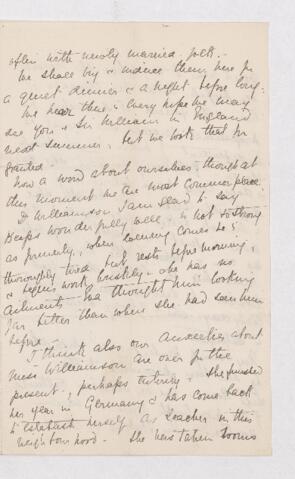 often with newly married folk. -
We shall try & induce them here for
a quiet dinner & a night before long.
We hear there is every hope we may
see you & Sir William in England
next summer, but we look that for
granted.
Now a word about ourselves, though at
this moment we are most commonplace.
Dr Williamson, I am glad to say
keeps wonderfully well, is not so strong
as formerly, when evening comes he is
thoroughly tired but rests before morning,
& begins work briskly - he has no
ailments. thought him looking
far better than when she had seen him
before.
I think also our anxieties about
Miss Williamson are over for the
present, perhaps entirely. She finished
her year in Germany & has come back
to establish herself as teacher in this
neighbourhood. She has taken rooms